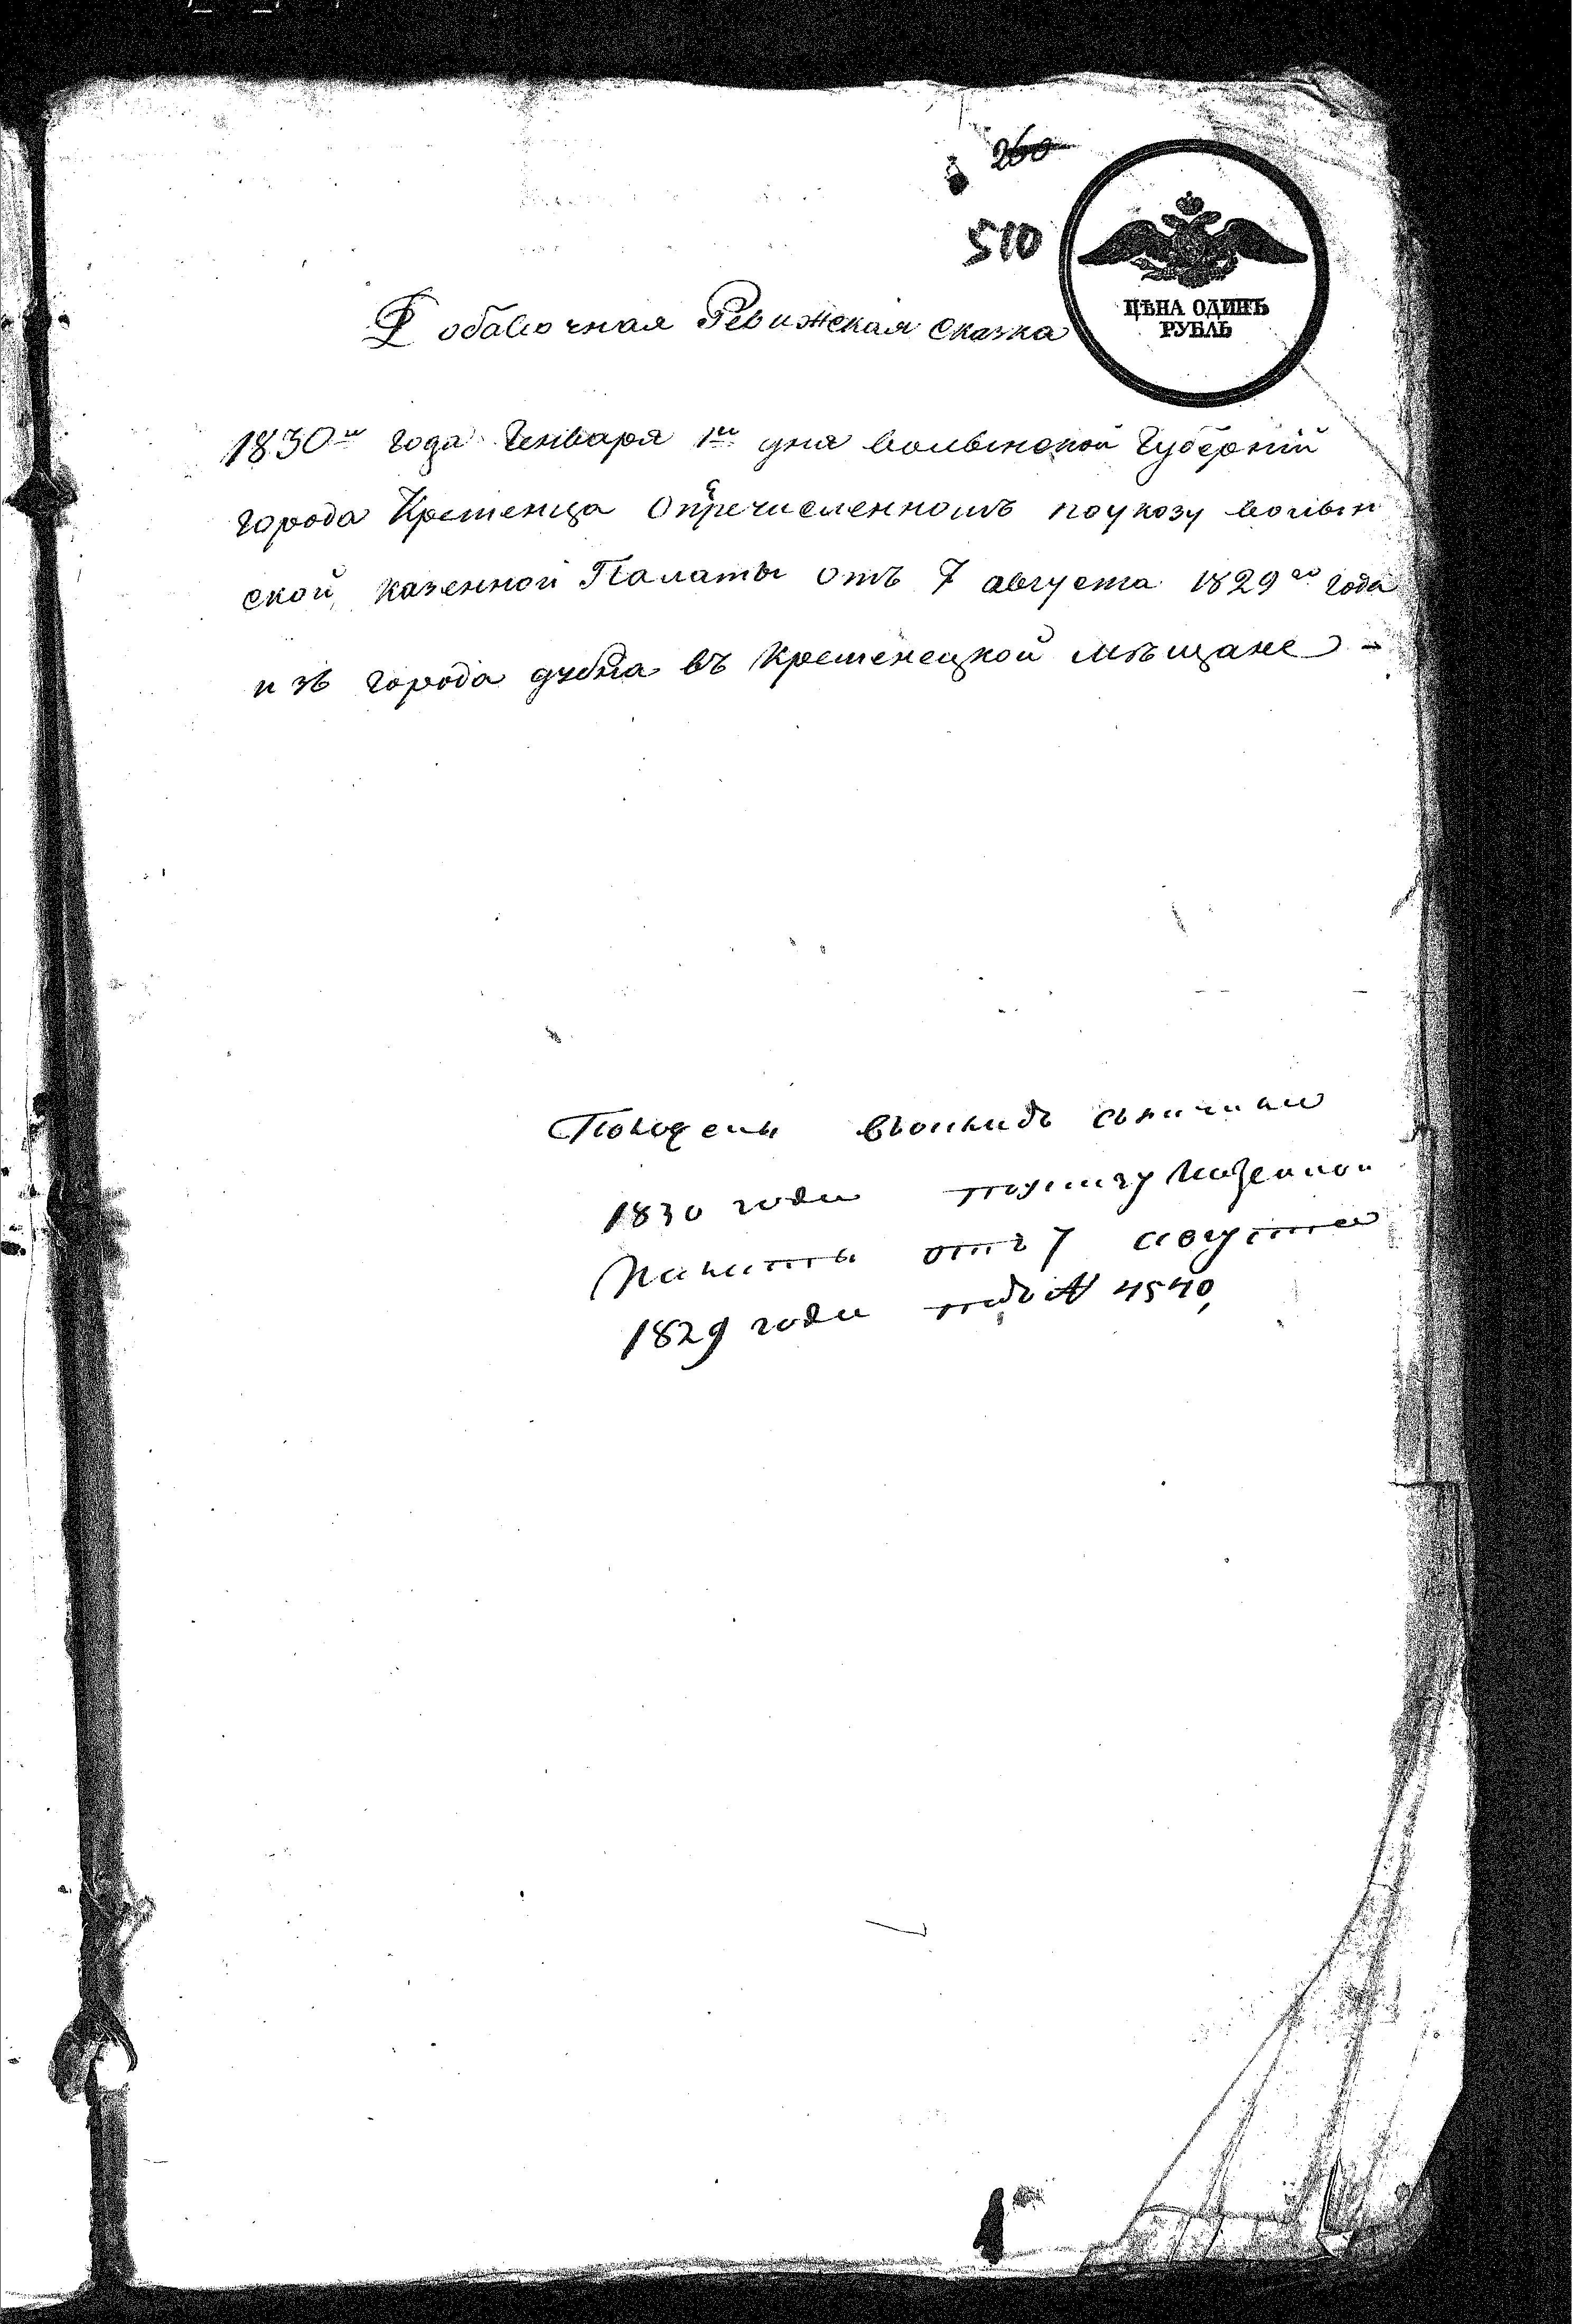 260
510
ЦѢНА ОДИНЪ
РУБЛЬ
Добавочная Ревижская сказка
1830го года Генваря 1го дня волынской Губернiй
города Кременца О пречисленномъ поуказу волын
ской казенной Палаты отъ 7 августа 1829го года
изъ города дубна въ Кременецкой мѣщане
Показаны въ окладъ съ
1830 года по указу Казенной
Палаты отъ 7 августа
1829 года подъ № 4540,